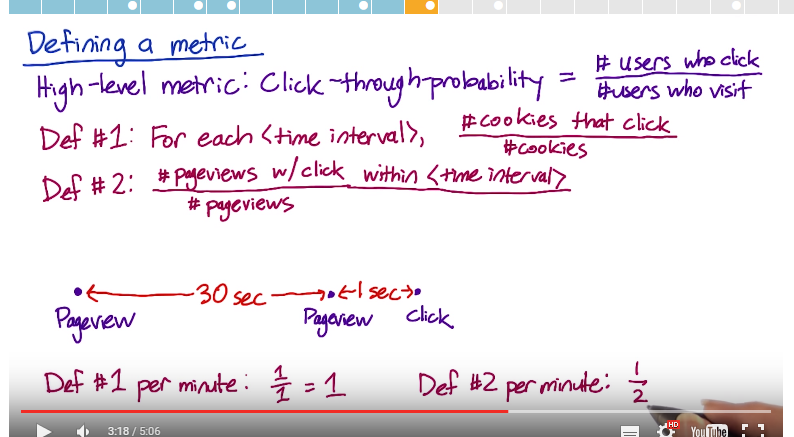 Defining a metric
High-level metric: Click-through-probability = # users who click / # users who visit
Def #1: For each <time interval>, # cookies that click / # cookies
Def #2: # pageviews w/click within <time interval> / # pageviews
30 sec 1 sec
Pageview Pageview Click
Def #1 per minute: 1/1 = 1 Def #2 per minute: 1/2
3:18 / 5:06 HD YouTube